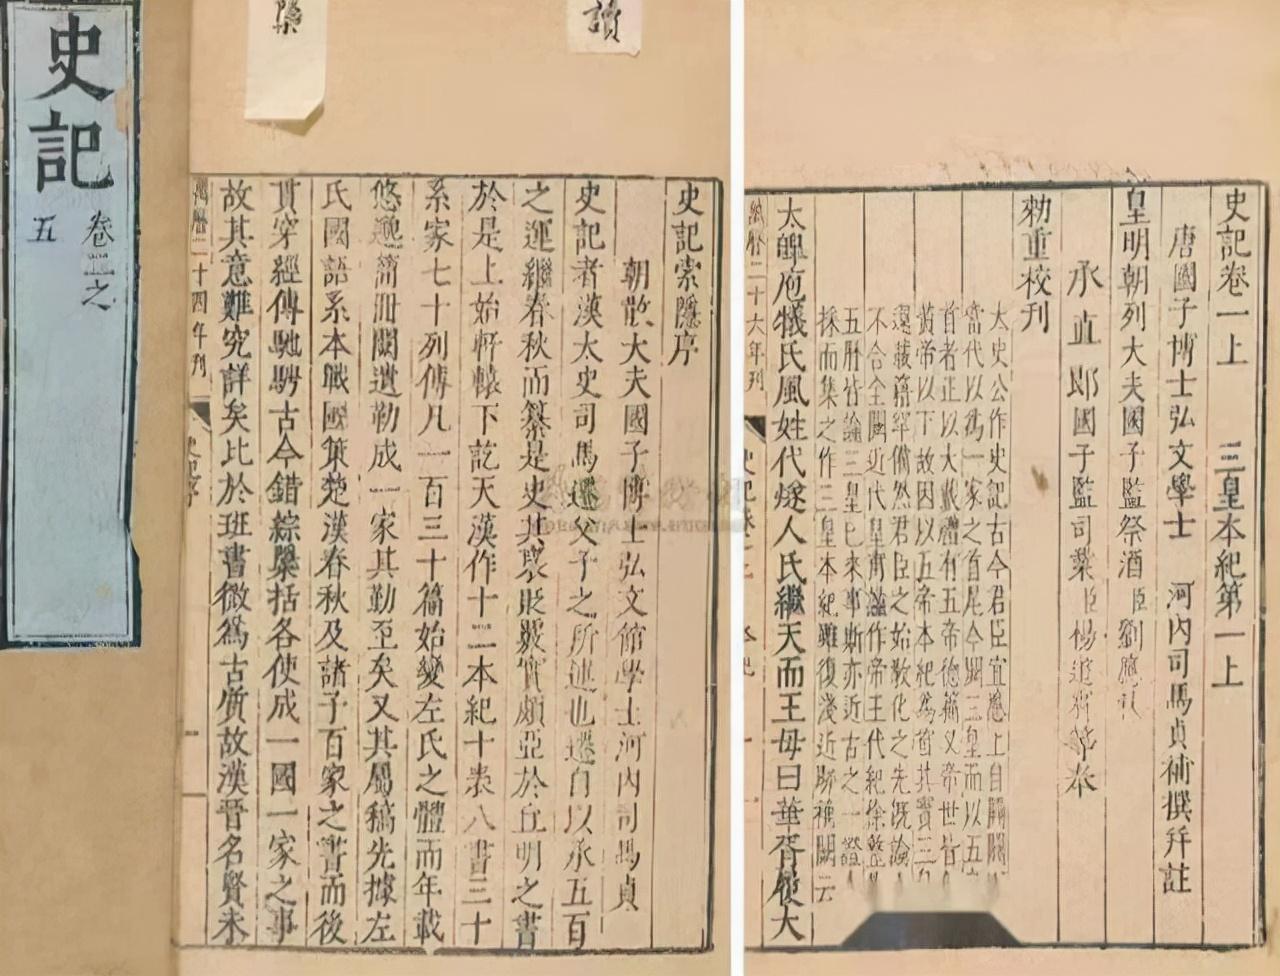 史記
卷三之
五
讀
史記索隱序
朝散大夫國子博士弘文館學士河內司馬貞
史記者漢太史司馬遷父子之所述也遷自以承五百
之運繼春秋而纂是史其褒貶覈實頗亞於丘明之書
於是上始軒轅下訖天漢作十二本紀十表八書三十
系家七十列傳凡一百三十篇始變左氏之體而年載
悠邈簡冊闕遺勒成一家其勤至矣又其屬稿先據左
氏國語系本戰國策楚漢春秋及諸子百家之書而後
貫穿經傳馳騁古今錯綜櫽括各使成一國一家之事
故其意難究詳矣比於班書微爲古質故漢晉名賢未
萬曆二十四年刊 史記序
史記卷一上 三皇本紀第一上
唐國子博士弘文學士 河內司馬貞補撰幷註
皇明朝列大夫國子監祭酒臣劉應
承直郎國子監司業臣楊道賓等奉
勑重校刊
太史公作史記古今君臣宜應上自開闢
當代以爲一家之首尾今闕三皇而以五
首者正以大戴禮有五帝德篇又帝世皆
黃帝以下故因以五帝本紀爲首其實三
還載籍罕備然君臣之始敎化之先旣論
不合全闕近代皇甫謐作帝王代紀徐整
五曆皆論三皇已來事斯亦近古之一證
採而集之作三皇本紀雖復淺近聊補闕云
太皥庖犧氏風姓代燧人氏繼天而王母曰華胥履大
萬曆二十六年刊 史記卷之一 本紀